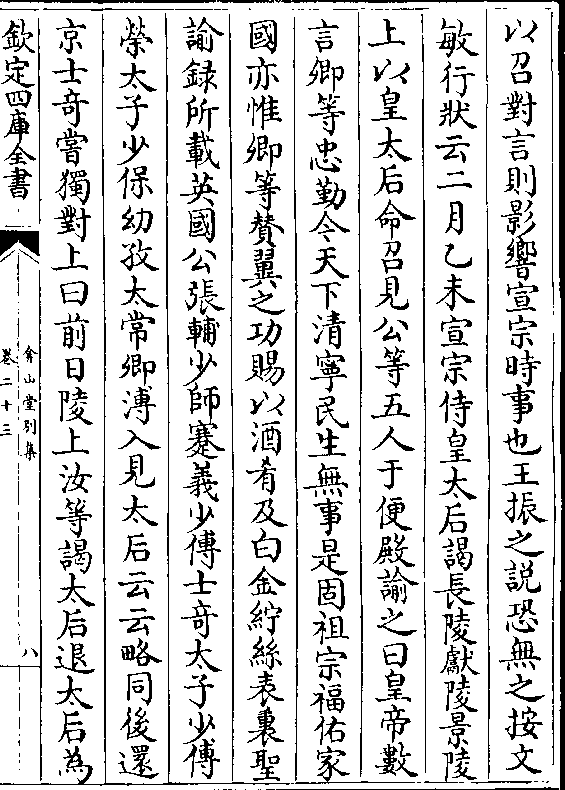 以召對言則影響宣宗時事也王振之說恐無之按文
敏行狀云二月乙未宣宗侍皇太后謁長陵獻陵景陵
上以皇太后命召見公等五人于便殿諭之曰皇帝數
言卿等忠勤今天下清寧民生無事是固祖宗福佑家
國亦惟卿等賛翼之功賜以酒肴及白金紵絲表裏聖
諭録所載英國公張輔少師蹇義少傅士奇太子少傅
榮太子少保幼孜太常卿溥入見太后云云略同後還
京士奇嘗獨對上曰前日陵上汝等謁太后退太后為
欽定四庫全書
弇山堂別集
卷二十三
八